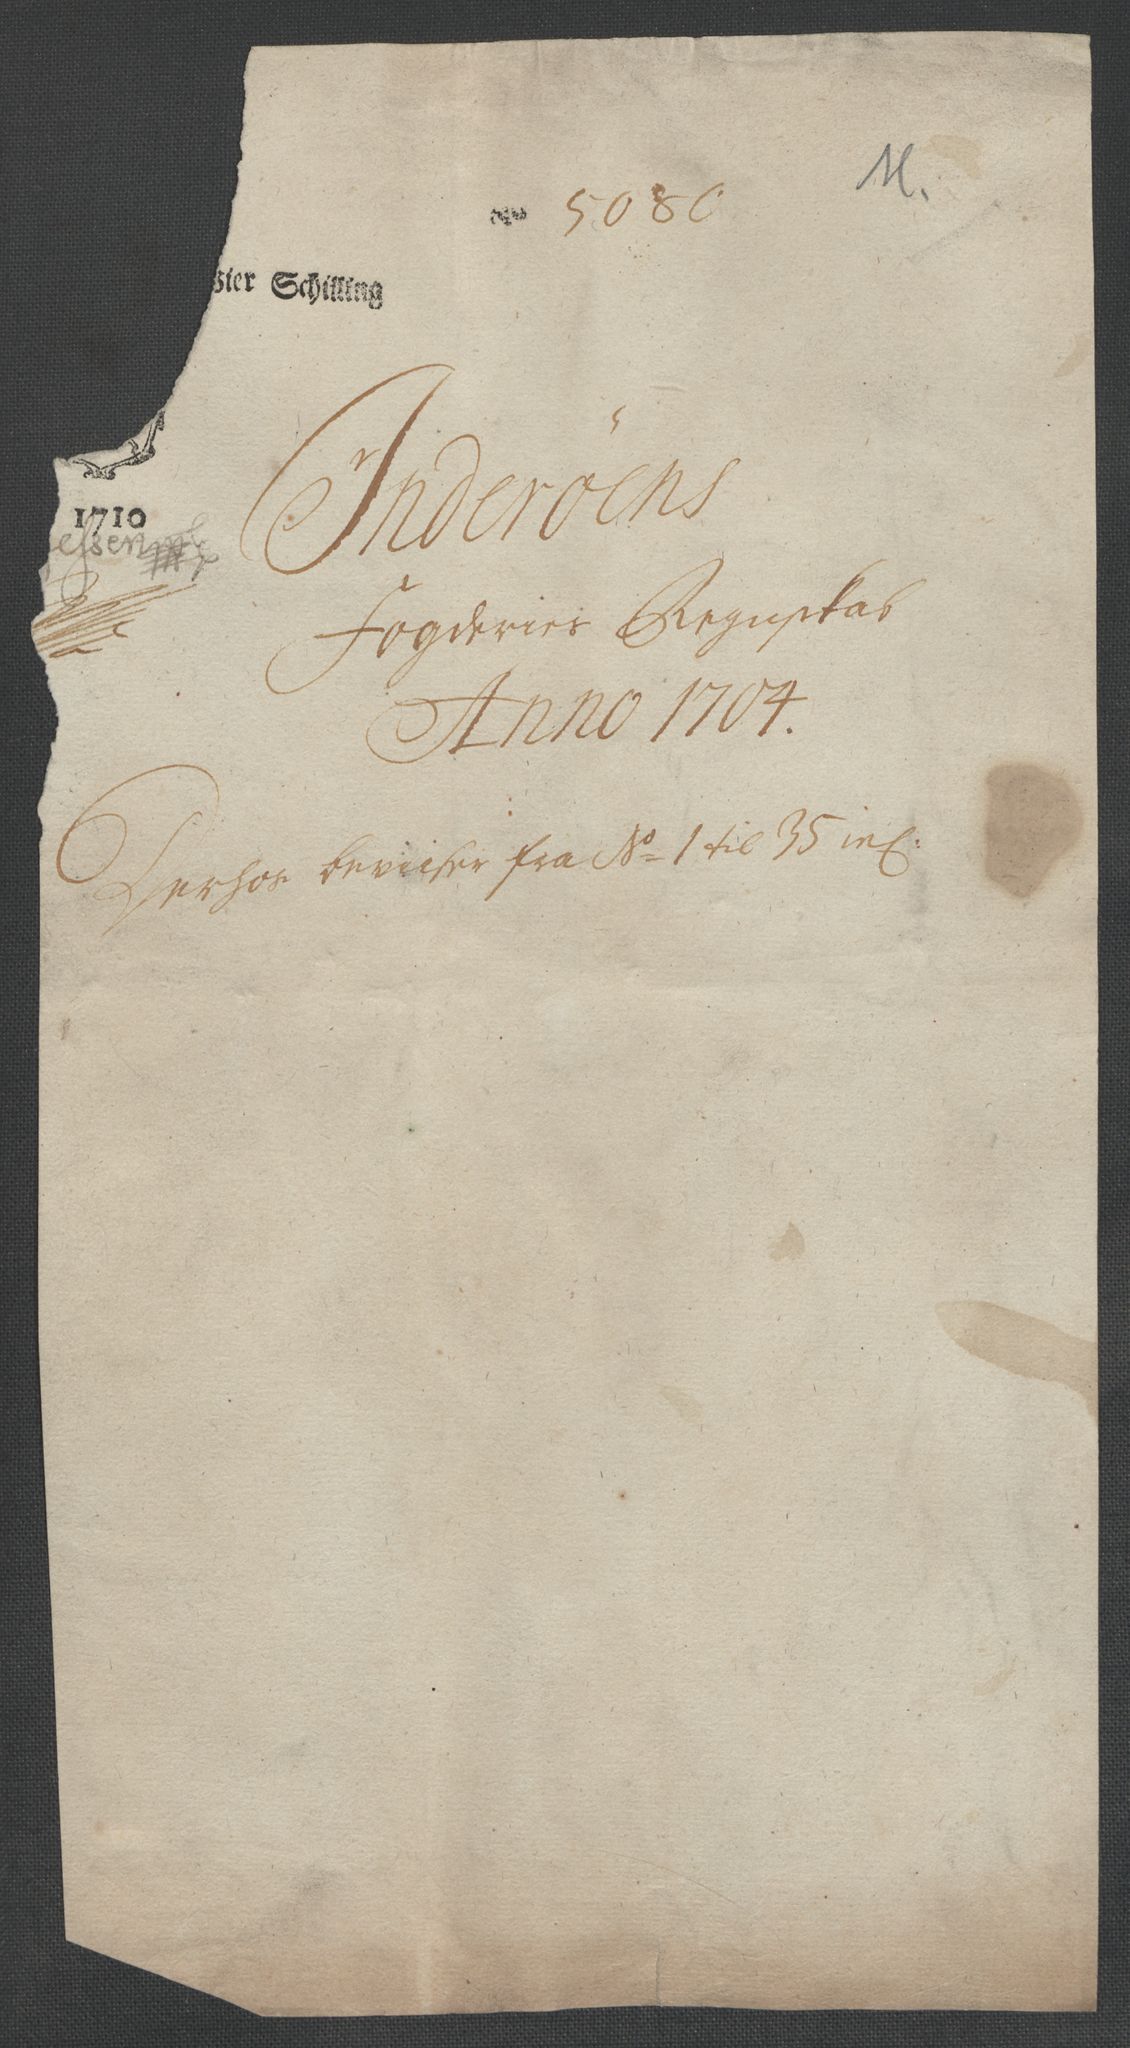 M.
No 5080
Schilling
1710
Inderöens
Fogderies Regnskab
Anno 1704.
Derhos beviiser fra No 1 til 35 incl: